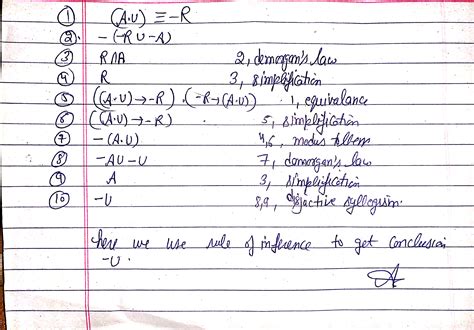 ① (A.U) ≡ -R
②. - (-R ∪ -A)
③ R∩A 2, demorgan's law
④ R 3, simplification
⑤ ((A.U) → -R) . (-R → (A.U)) 1, equivalance
⑥ ((A.U) → -R) 5, simplification
⑦ - (A.U) 4,6, modus tollens
⑧ -A∪-U 7, demorgan's law
⑨ A 3, simplification
⑩ -U 8,9, disjactive syllogism.
here we use rule of inference to get conclusion
-U.